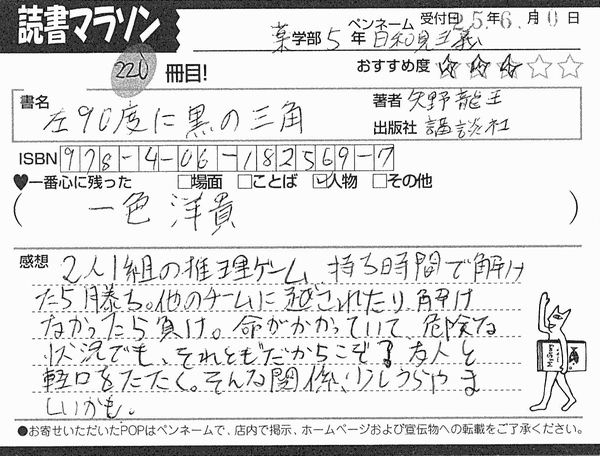 読書マラソン
ペンネーム 受付日 25年6月10日
薬学部5年 日和見主義
220冊目!
おすすめ度 ★★★☆☆
書名 左90度に黒の三角
著者 矢野龍王
出版社 講談社
ISBN 978-4-06-182569-7
♥一番心に残った □場面 □ことば ☑人物 □その他
(一色 洋貴)
感想 2人1組の推理ゲーム 持ち時間で解け
たら勝ち。他のチームに越されたり、解け
なかったら負け。命がかかっていて、危険な
状況でも、それともだからこそ?友人と
軽口をたたく。そんな関係、少しうらやま
しいかも。
●お寄せいただいたPOPはペンネームで、店内で掲示、ホームページおよび宣伝物への転載をご了承ください。